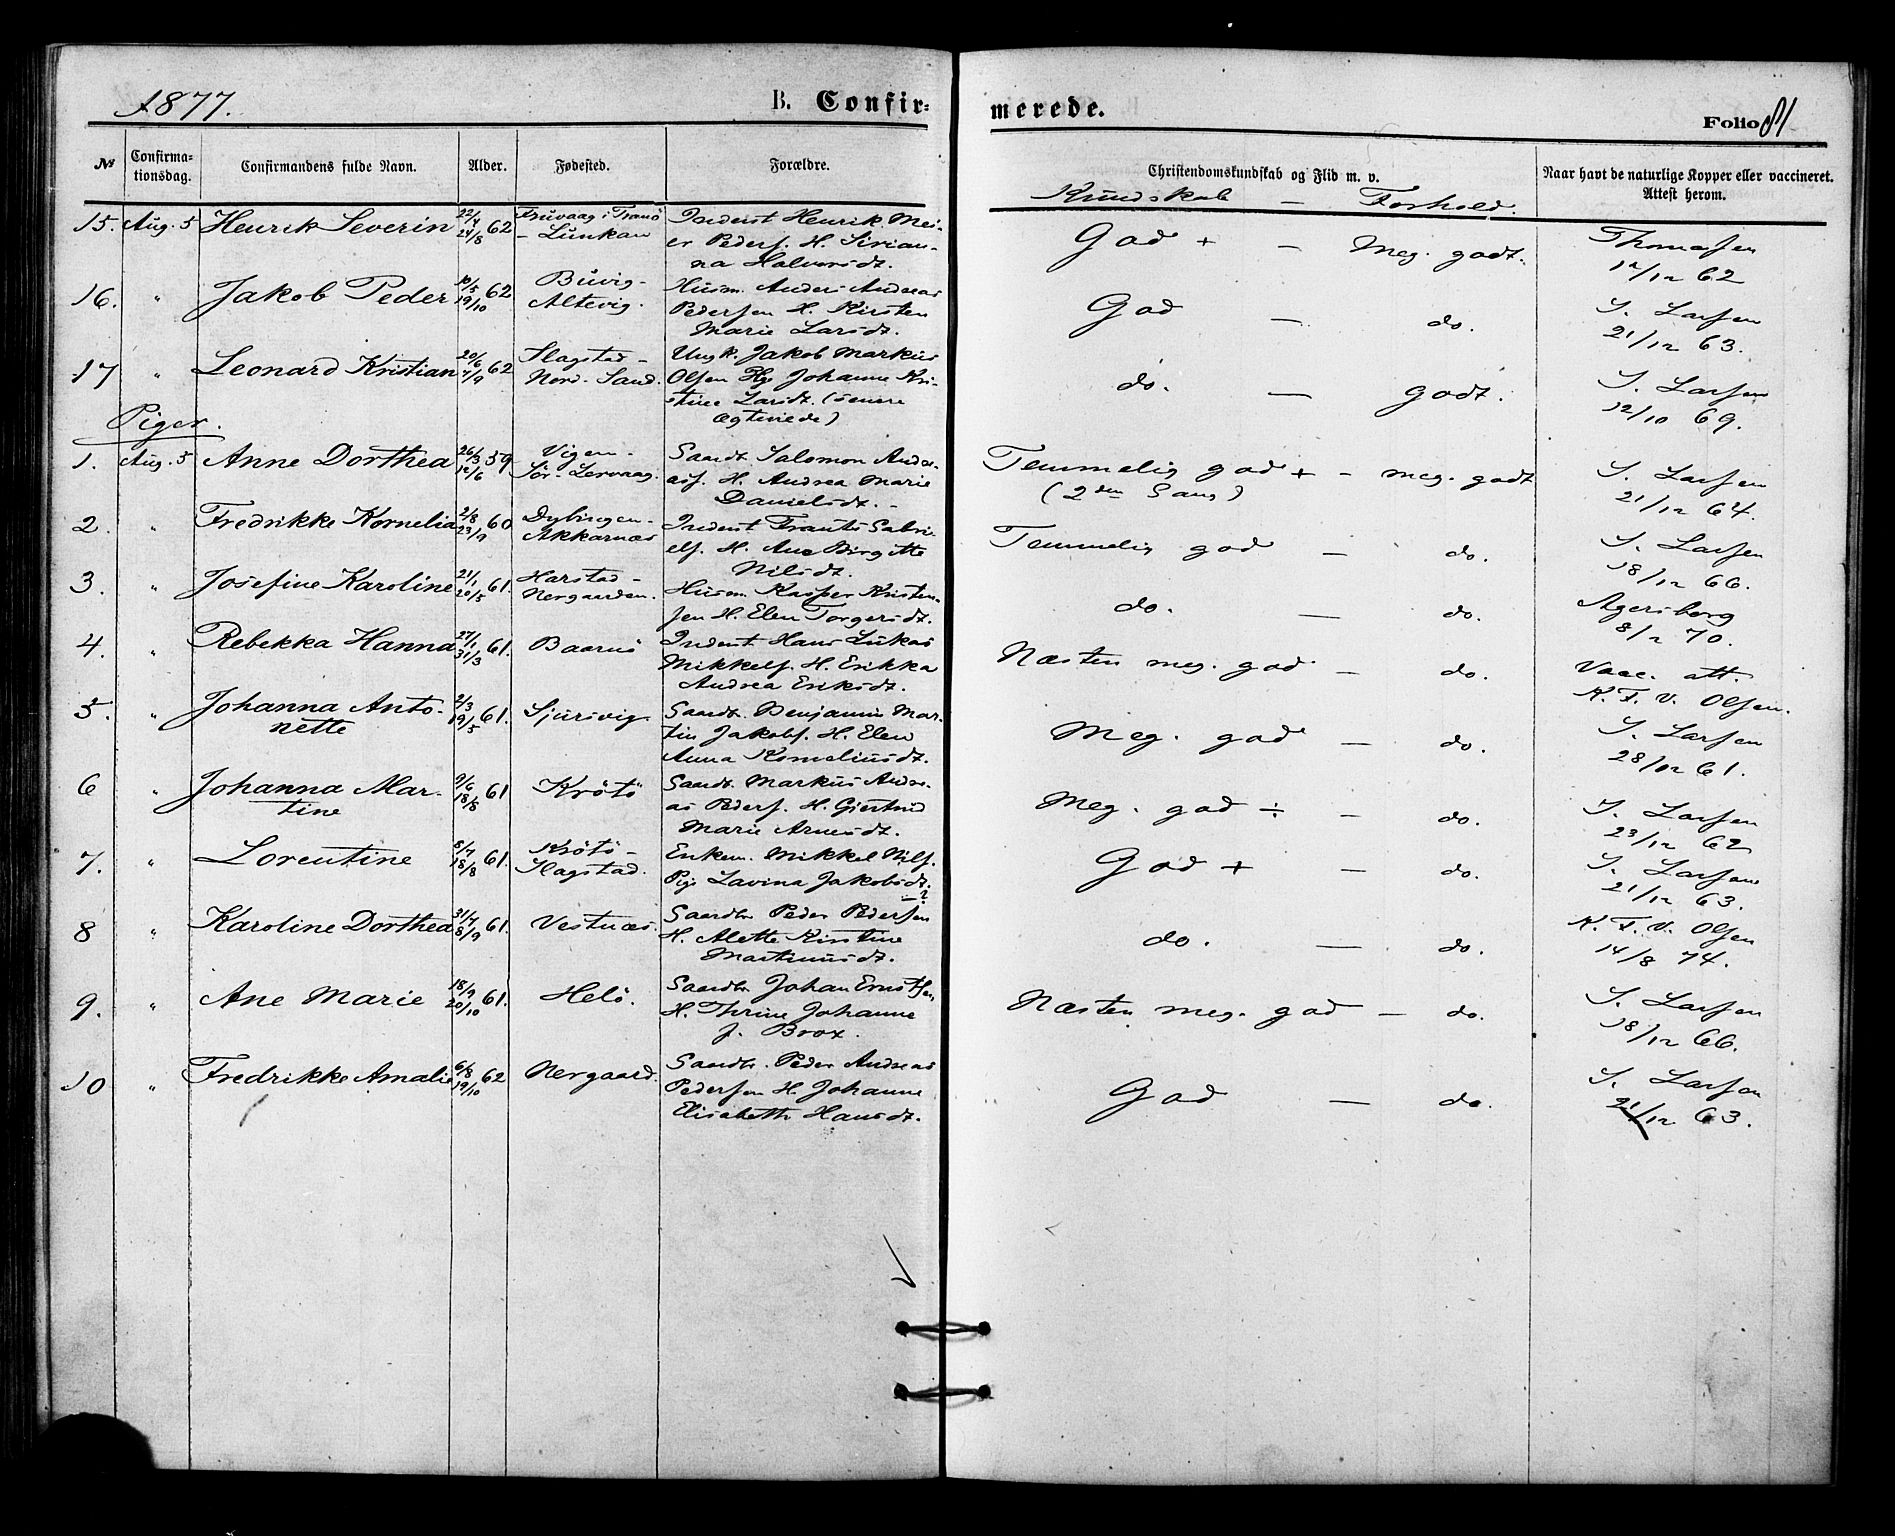 1877.
B. Confir-
merede.
Folio 81
No
Confirma-
tionsdag.
Confirmandens fulde Navn.
Alder.
Fødested.
Forældre.
Christendomskundskab og Flid m. v.
Kundskab — Forhold.
Naar havt de naturlige Kopper eller vaccineret.
Attest herom.
15. Aug. 5 Henrik Severin 22/4 24/8 62
Fruvaag i Tranö
- Lunkan
Inderst Henrik Mei-
er Peders. H. Sirian-
na Halvorsdt.
God + — Meg. godt.
Thomassen
12/12 62
16. " Jakob Peder 10/5 19/10 62
Buvig-
Altevig.
Husm. Anders Andreas
Pedersen H. Kirsten
Marie Larsdt.
God — do.
S. Larsen
21/12 63.
17 " Leonard Kristian 20/6 7/9 62
Slagstad -
Nord-Sand.
Ungk. Jakob Markus
Olsen Pige Johanne Kri-
stine Larsdt. (senere
ægteviede)
do. — godt.
S. Larsen
12/10 69.
Piger.
1. Aug. 5 Anne Dorthea 26/3 12/6 59
Vigen-
Sör-Lervaag.
Gaardb. Salomon Andre-
ass. H. Andrea Marie
Danielsdt. -
Temmelig god + - meg. godt
(2den Gang)
S. Larsen
21/12 64.
2. " Fredrikke Kornelia 2/8 23/9 60
Dybingen-
Akkarnæs
Inderst Frants Gabri-
els. H. Ane Birgitte
Nilsdt.
Temmelig god — do.
S. Larsen
18/12 66.
3. " Josefine Karoline 21/1 20/5 61.
Harstad -
Nergaarden.
Husm. Kasper Kristen-
sen H. Elen Torgersdt.
do. — do.
Agersborg
8/2 70.
4. " Rebekka Hanna 27/1 31/3 61.
Baarnö
Inderst Hans Lukas
Mikkels. H. Erikka
Andrea Eriksdt.
Næsten meg. god — do.
Vacc. att.
K. F. V. Olsen.
5. " Johanna Anto-
nette 2/3 19/5 61.
Sjursvig
Gaardb. Benjamin Mar-
tin Jakobs. H. Elen
Anna Korneliusdt.
Meg. god — do.
S. Larsen
28/12 61.
6 " Johanna Mar-
tine 9/6 18/8 61
Kröttö
Gaardb. Markus Andre-
as Peders. H. Gjertrud
Marie Arnesdt.
Meg. god ÷ — do.
S. Larsen
23/12 62
7. " Lorentine 8/7 18/8 61.
Kröttö -
Slagstad.
Enkem. Mikkel Nils.
Pige Lavina Jakobsdt.
God + — do.
S. Larsen
21/12 63.
8 " Karoline Dorthea 31/7 8/9 61.
Vestnæs.
Gaardbr Peder Pedersen
H. Alette Kirstine
Martinusdt.
do. — do.
K. F. V. Olsen
14/8 74.
9. " Ane Marie 18/9 20/10 61.
Helö.
Gaardbr Johan Ernstsen,
H. Thrine Johanne
f. Brox.
Næsten meg. god — do.
S. Larsen
18/12 66.
10 " Fredrikke Amalie 6/8 19/10 62
Nergaard.
Gaardbr. Peder Andreas
Pedersen H. Johanne
Elisabeth Hansdt.
God — do.
S. Larsen
21/12 63.